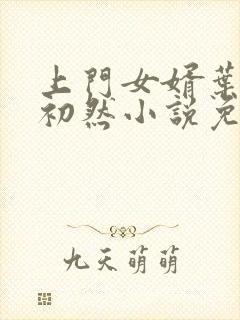 上門女婿葉
初然小說免
九天萌萌